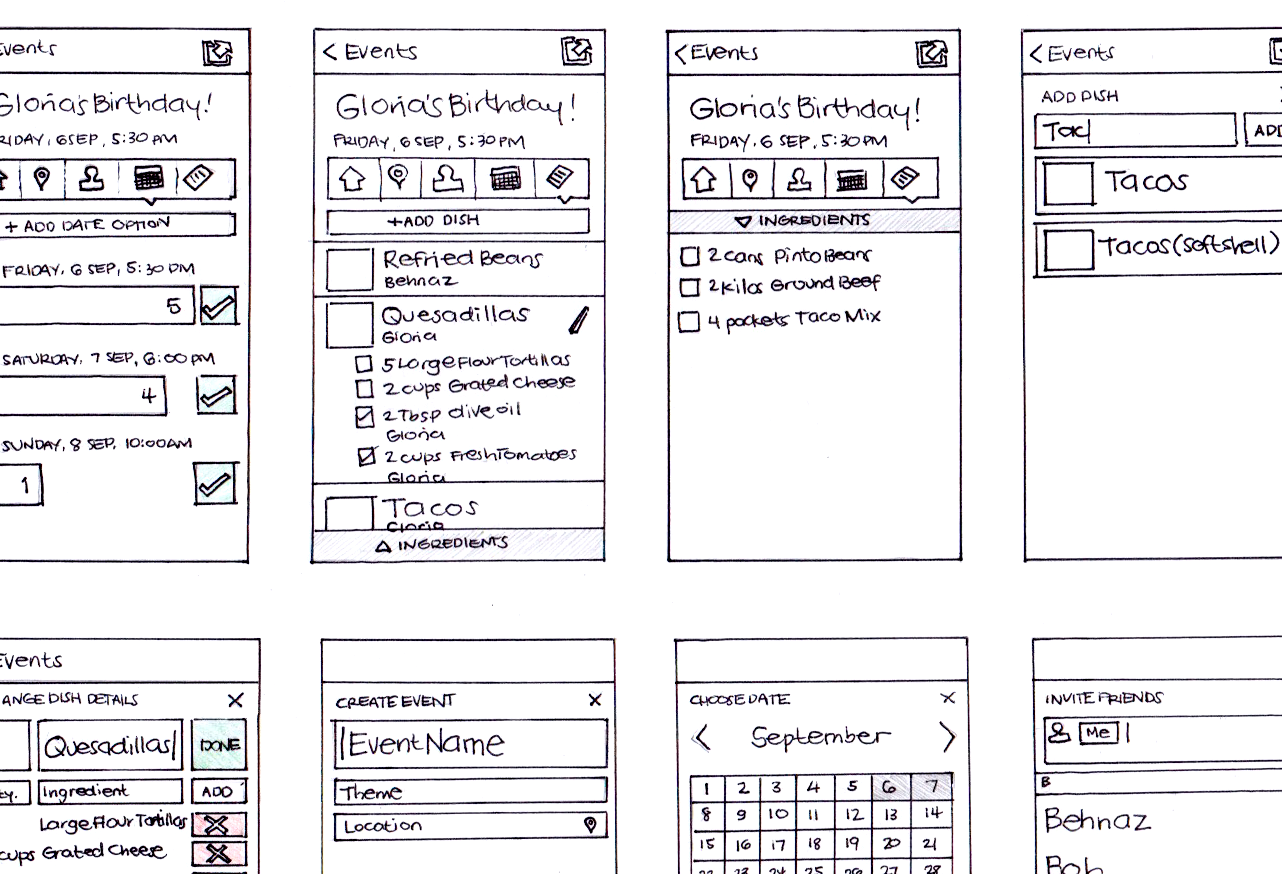 Events
Gloria's Birthday!
FRIDAY, 6 SEP, 5:30 PM
+ ADD DATE OPTION
FRIDAY, 6 SEP, 5:30 PM
5
SATURDAY, 7 SEP, 6:00 PM
4
SUNDAY, 8 SEP, 10:00AM
1
< Events
Gloria's Birthday!
FRIDAY, 6 SEP, 5:30 PM
+ADD DISH
Refried Beans
Behnaz
Quesadillas
Gloria
5 Large Flour Tortillas
2 cups Grated Cheese
2 Tbsp Olive oil
Gloria
2 cups Fresh Tomatoes
Gloria
Tacos
Gloria
△ INGREDIENTS
< Events
Gloria's Birthday!
FRIDAY, 6 SEP, 5:30PM
▽ INGREDIENTS
2 cans Pinto Beans
2 Kilos Ground Beef
4 packets Taco Mix
< Events
ADD DISH
Tac|
ADD
Tacos
Tacos (softshell)
Events
ANGE DISH DETAILS X
Quesadillas| DONE
ty. Ingredient ADD
Large Flour Tortillas X
cups Grated Cheese X
CREATE EVENT X
|Event Name
Theme
Location
CHOOSE DATE X
< September >
1 2 3 4 5 6 7
8 9 10 11 12 13 14
15 16 17 18 19 20 21
22 23 24 25 26 27 28
INVITE FRIENDS
Me |
B
Behnaz
Bob